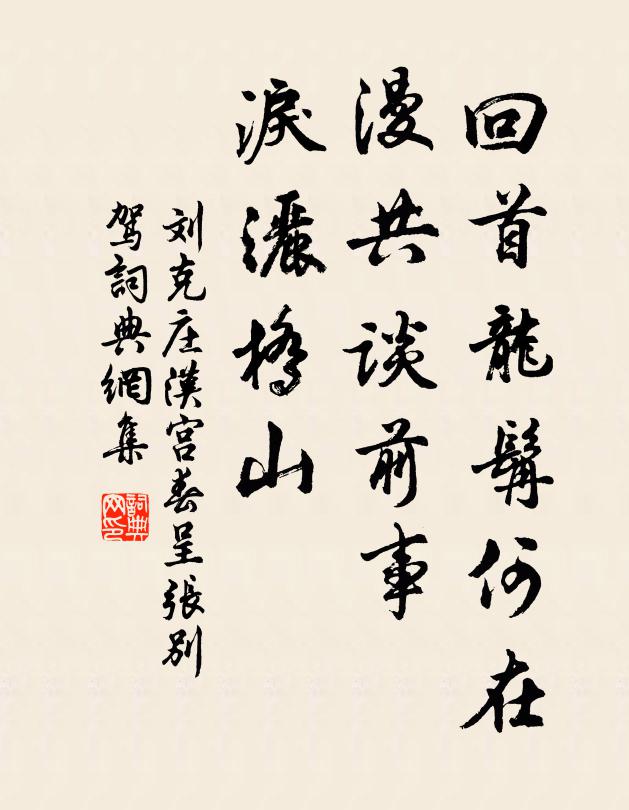 回首龍髯何在
漫共談前事
淚灑橋山
刘克庄漢宮春呈張別
駕詞典網集
詞典
网印